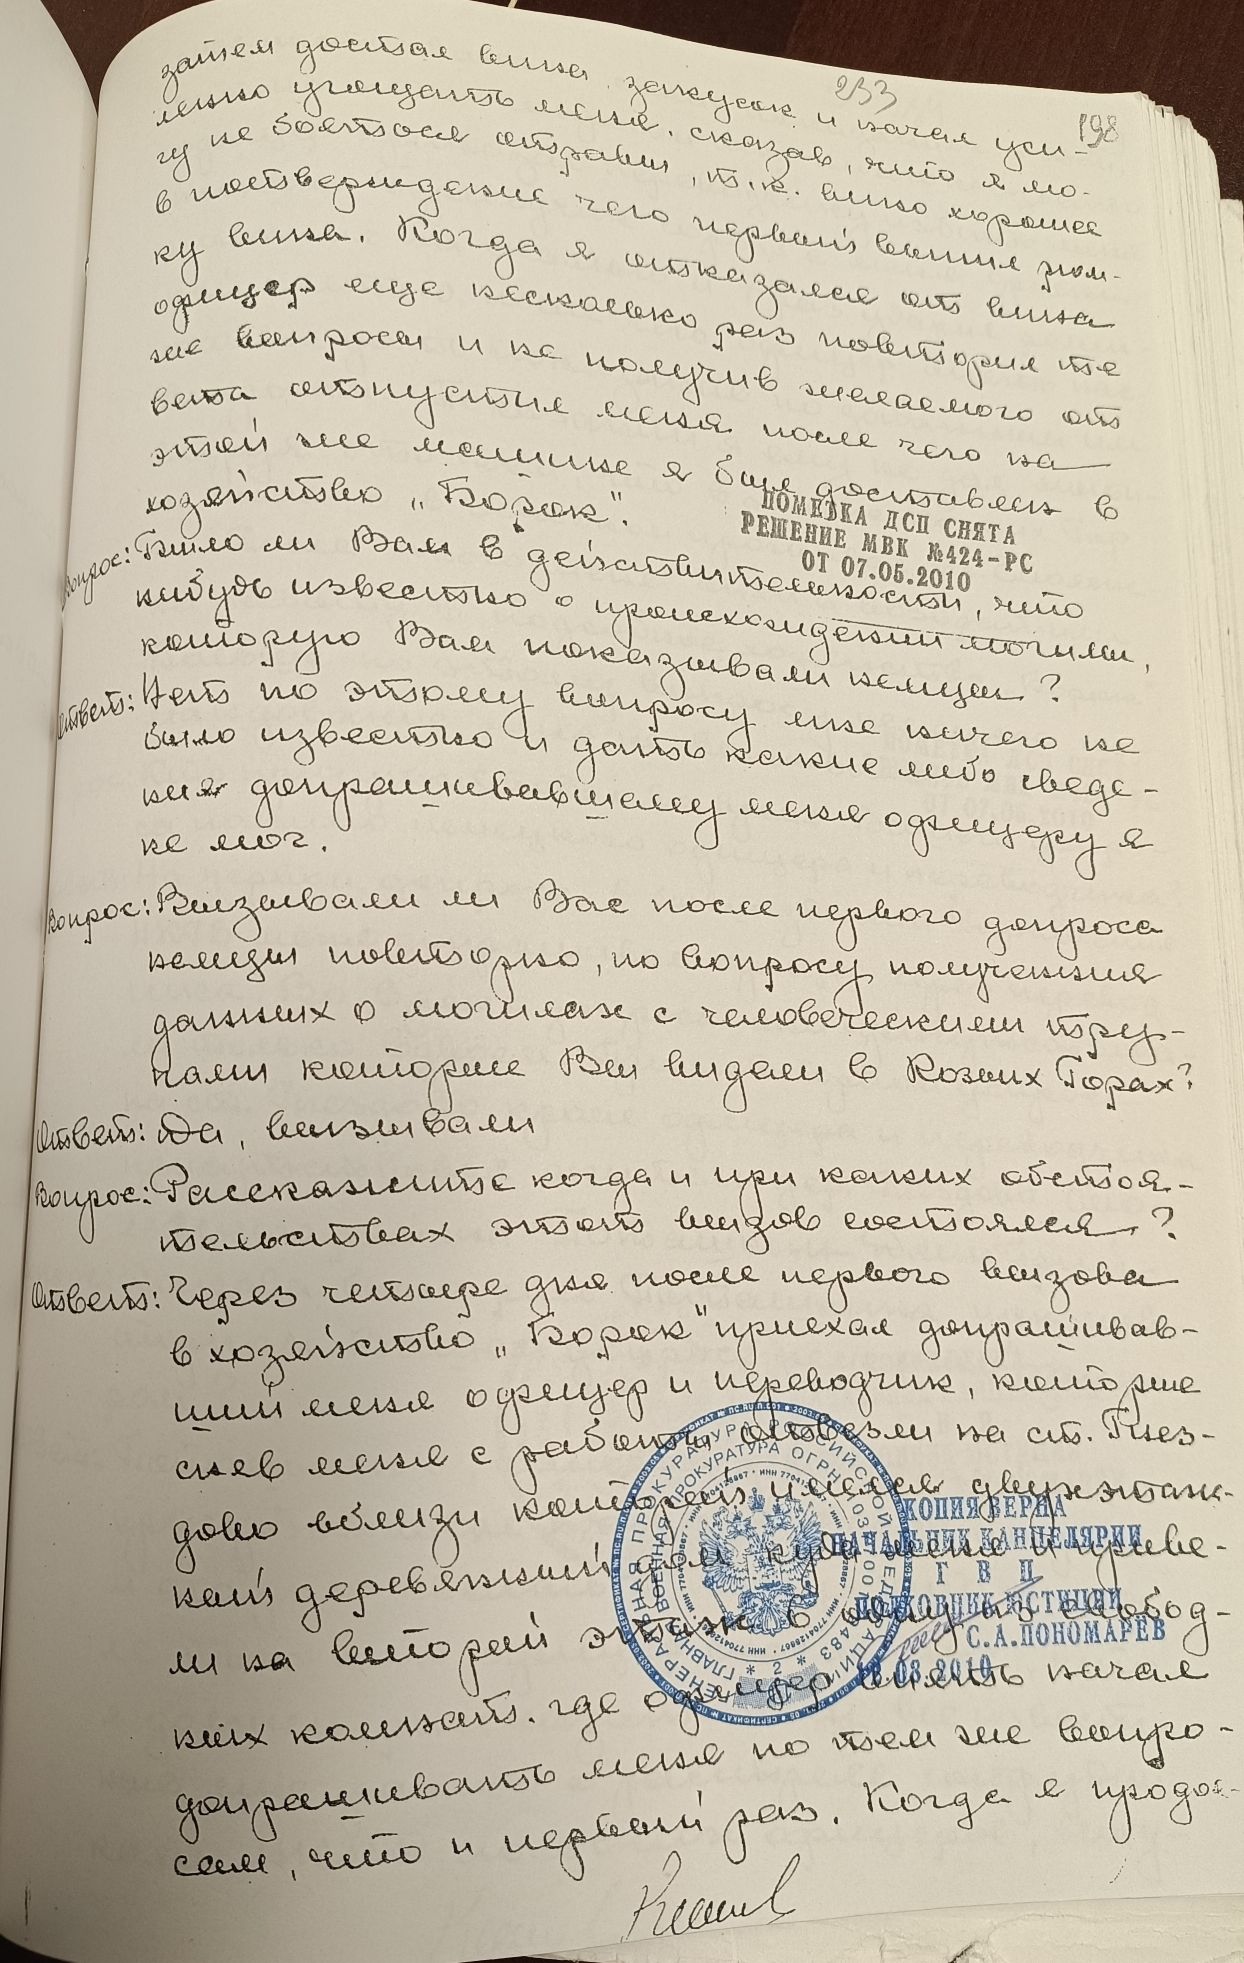 233
198
затем достал вина закусок и начал уси-
ленно угощать меня, сказав, что я мо-
гу не бояться отравы, т.к. вино хорошее
в потверждение чего первый выпил рюм-
ку вина. Когда я отказался от вина
офицер еще несколько раз повторил те
же вопросы и не получив желаемого от
вета отпустил меня после чего на
этой же машине я был доставлен в
хозяйство „Борок".
ПОМЕТКА ДСП СНЯТА
РЕШЕНИЕ МВК №424-РС
ОТ 07.05.2010
Вопрос: Было ли Вам в действительности, что
нибудь известно о происхождении могилы,
которую Вам показывали немцы?
Ответ: Нет по этому вопросу мне ничего не
было известно и дать какие либо сведе-
ния допрашивавшему меня офицеру я
не мог.
Вопрос: Вызывали ли Вас после первого допроса
немцы повторно, по вопросу получения
данных о могилах с человеческими тру-
пами которые Вы видели в Козьих Горах?
Ответ: Да, вызывали
Вопрос: Расскажите когда и при каких обстоя-
тельствах этот вызов состоялся?
Ответ: Через четыре дня после первого вызова
в хозяйство „Борок" приехал допрашивав-
ший меня офицер и переводчик, которые
сняв меня с работы отвезли на ст. Гнез-
дово вблизи которой имелся двухэтаж-
ный деревянный дом куда меня и приве-
ли на второй этаж в одну из свобод-
ных комнат. где офицер опять начал
допрашивать меня по тем же вопро-
сам, что и первый раз. Когда я продол-
КОПИЯ ВЕРНА
НАЧАЛЬНИК КАНЦЕЛЯРИИ
Г В П
ПОЛКОВНИК ЮСТИЦИИ
С.А.ПОНОМАРЕВ
18.03.2010
ГЕНЕРАЛЬНАЯ ПРОКУРАТУРА РОССИЙСКОЙ ФЕДЕРАЦИИ
ГЛАВНАЯ ВОЕННАЯ ПРОКУРАТУРА
* 2 *